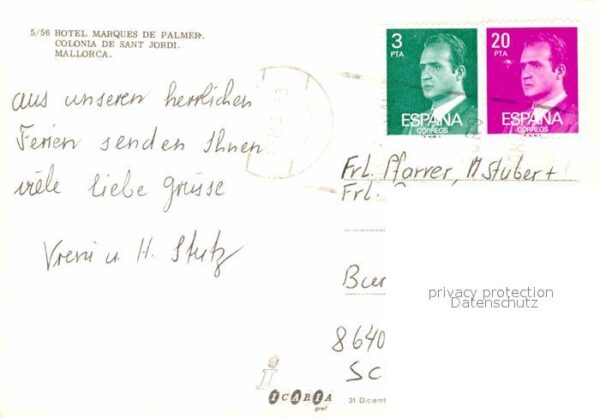 5/56 HOTEL MARQUES DE PALMER.
COLONIA DE SANT JORDI.
MALLORCA.
aus unseren herrlichen
Ferien senden Ihnen
viele liebe Grüsse
Vreni u H. Stutz
3
PTA
ESPAÑA
CORREOS
20
PTA
ESPAÑA
CORREOS
Frl. Pfarrer, M. Stuber +
Frl.
privacy protection
Datenschutz
8640
SC
ICARIA
graf
31 Diciemb